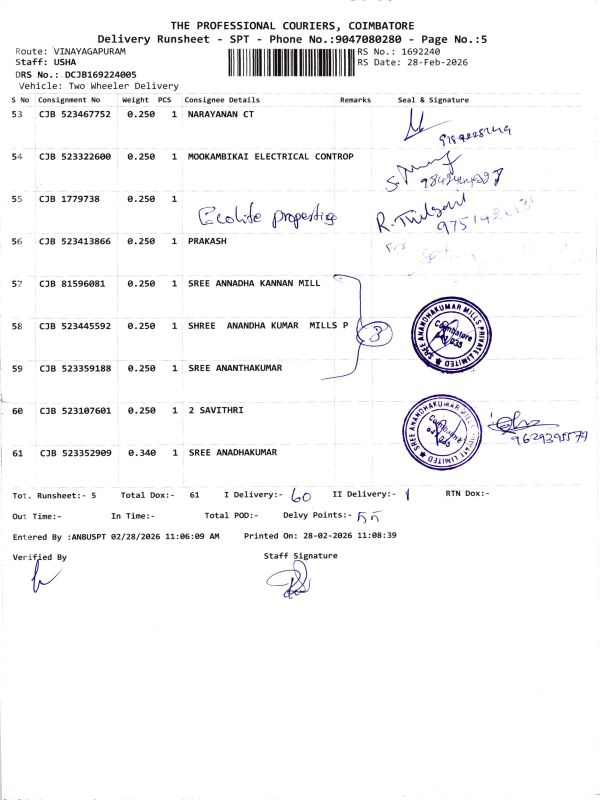 THE PROFESSIONAL COURIERS, COIMBATORE
Delivery Runsheet - SPT - Phone No.:9047080280 - Page No.:5
Route: VINAYAGAPURAM RS No.: 1692240
Staff: USHA RS Date: 28-Feb-2026
DRS No.: DCJB169224005
Vehicle: Two Wheeler Delivery
S No Consignment No Weight PCS Consignee Details Remarks Seal & Signature
53 CJB 523467752 0.250 1 NARAYANAN CT
54 CJB 523322600 0.250 1 MOOKAMBIKAI ELECTRICAL CONTROP
55 CJB 1779738 0.250 1
Ecolite properties
56 CJB 523413866 0.250 1 PRAKASH
57 CJB 81596081 0.250 1 SREE ANNADHA KANNAN MILL
58 CJB 523445592 0.250 1 SHREE ANANDHA KUMAR MILLS P 3
SREE ANANDHAKUMAR MILLS PRIVATE LIMITED
Coimbatore
59 CJB 523359188 0.250 1 SREE ANANTHAKUMAR
60 CJB 523107601 0.250 1 2 SAVITHRI
SREE ANANDHAKUMAR MILLS PRIVATE LIMITED
61 CJB 523352909 0.340 1 SREE ANADHAKUMAR
Tot. Runsheet:- 5 Total Dox:- 61 I Delivery:- 60 II Delivery:- 1 RTN Dox:-
Out Time:- In Time:- Total POD:- Delvy Points:- 55
Entered By :ANBUSPT 02/28/2026 11:06:09 AM Printed On: 28-02-2026 11:08:39
Verified By Staff Signature